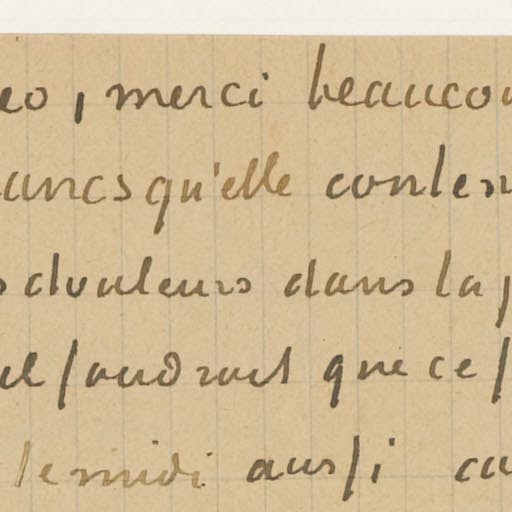 eo, merci beaucou
ancs qu'elle conten
s douleurs dans la p
il faudrait que ce f
le midi aussi ca